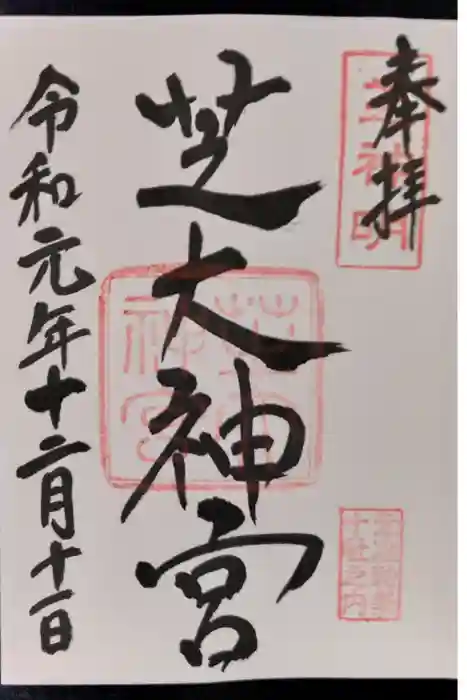 奉拝
芝神明
芝大神宮
令和元年十二月十一日